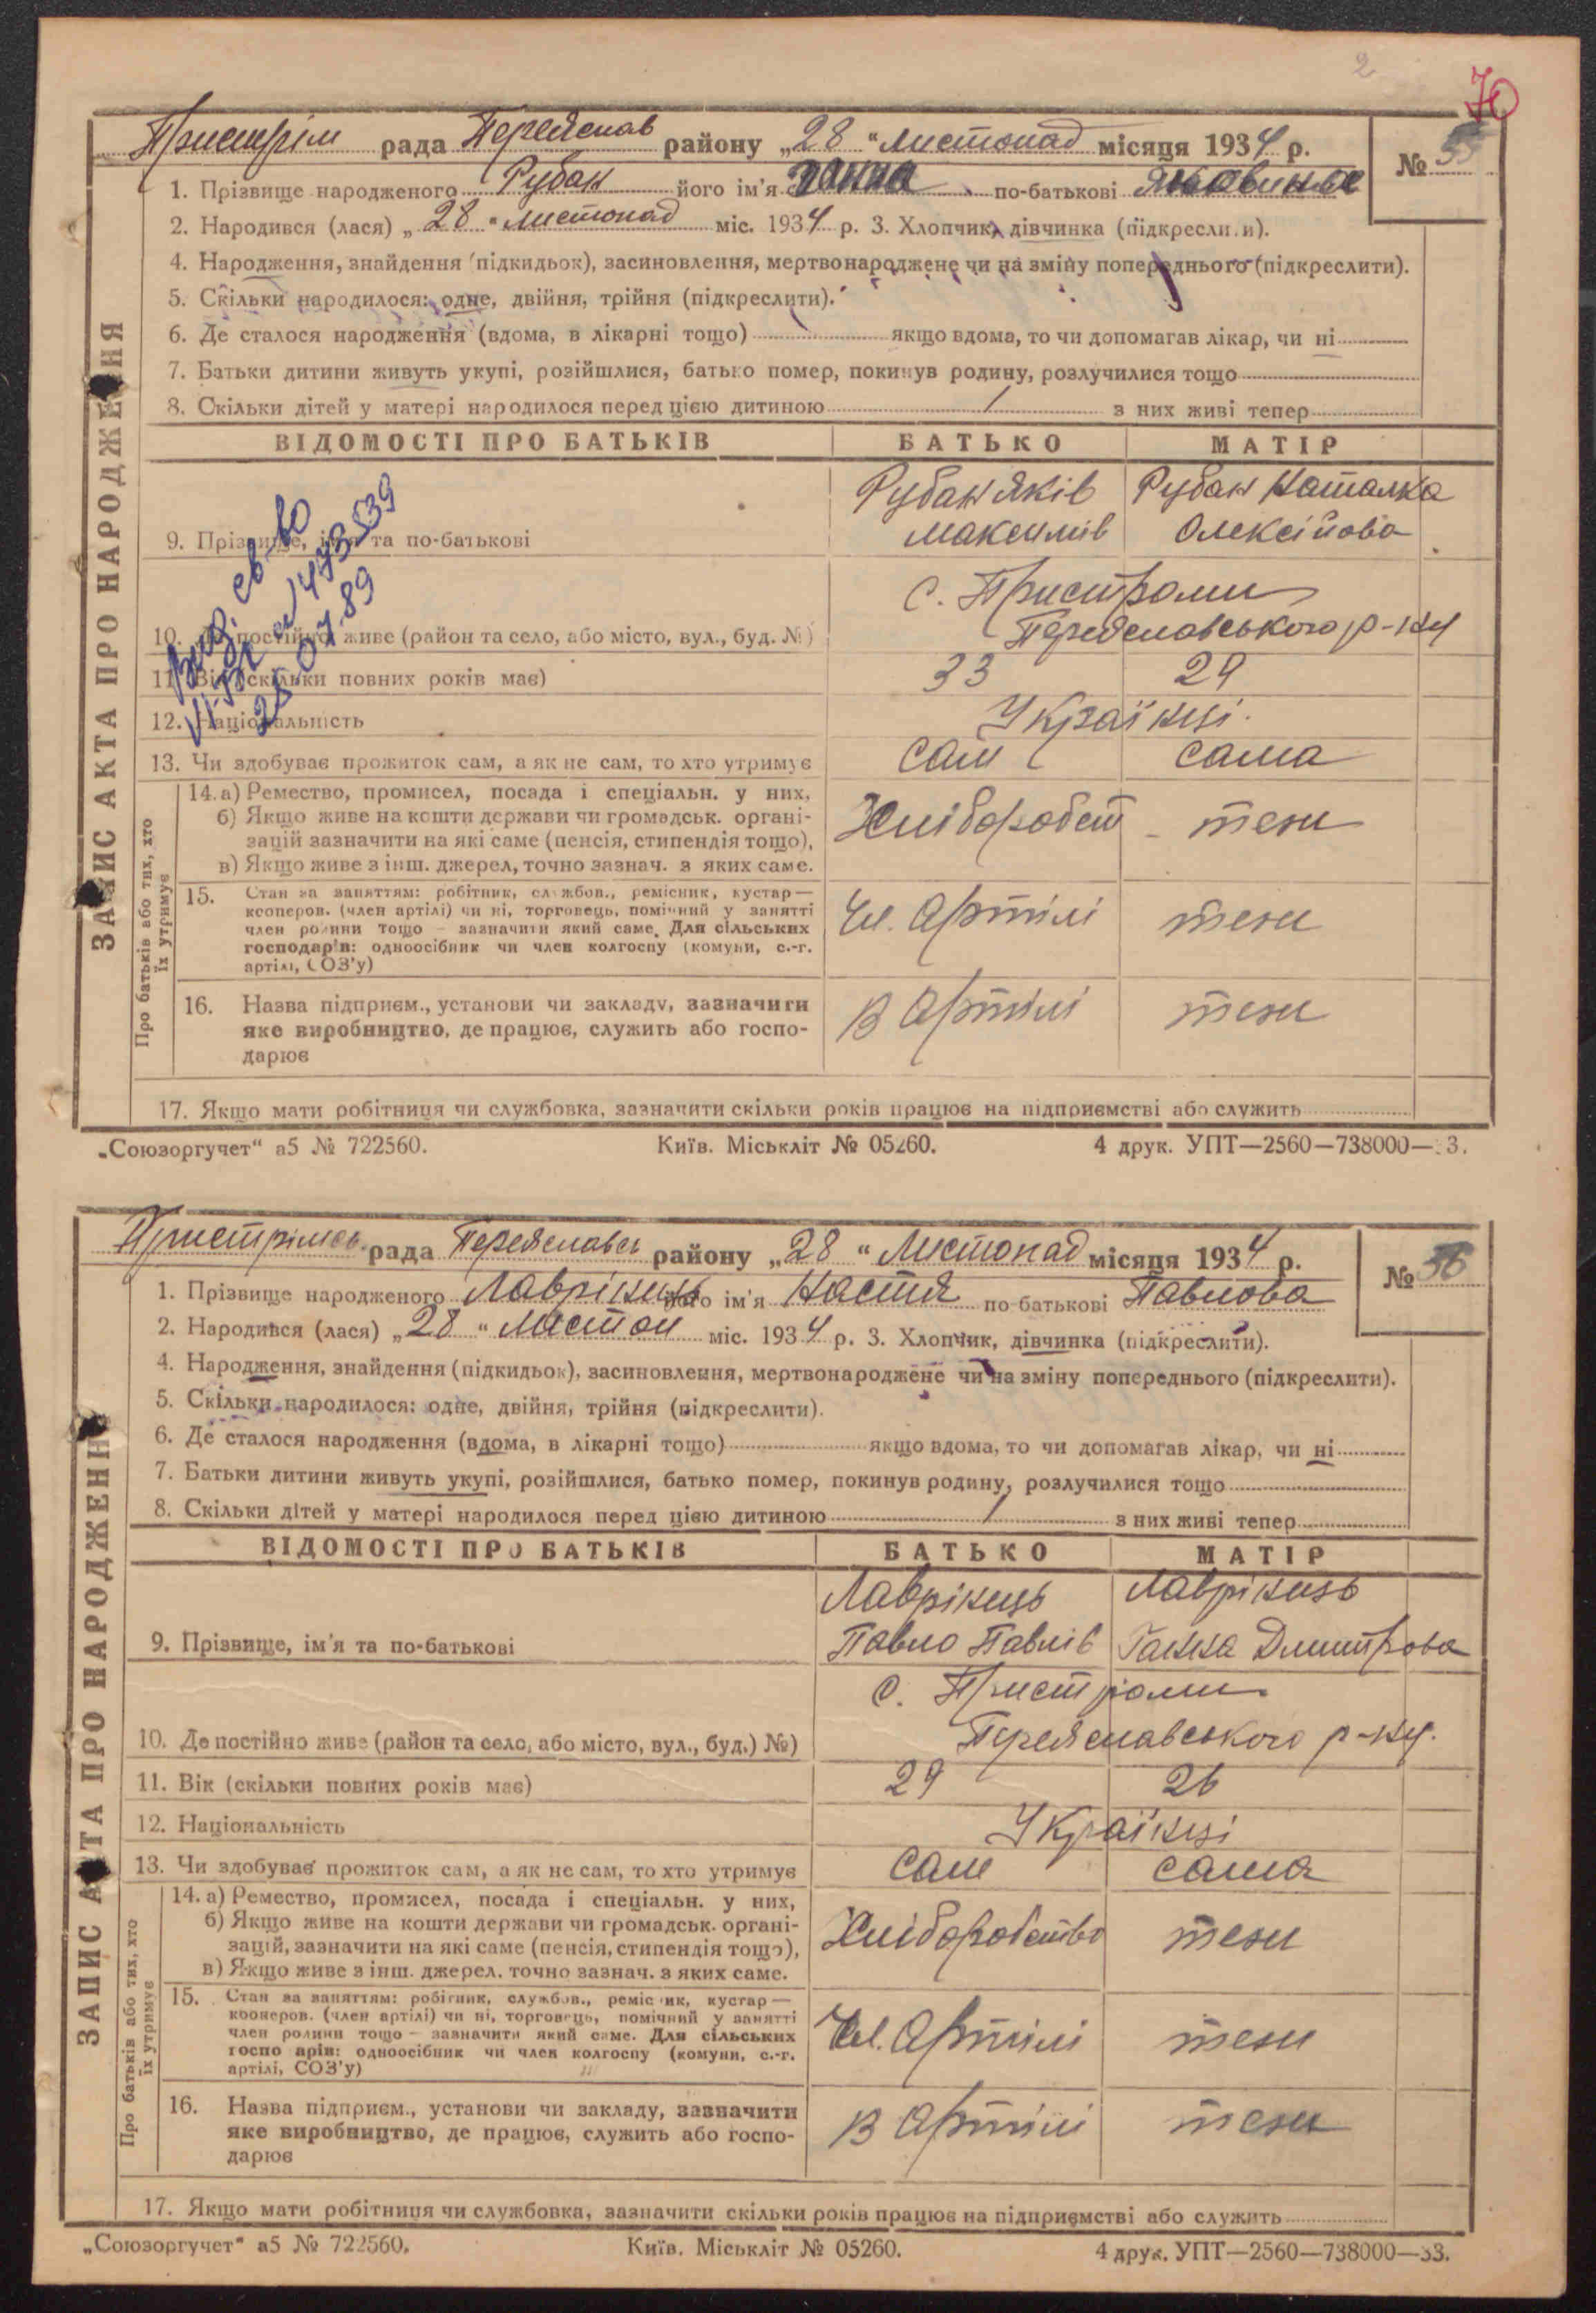 2
70
Пристрім рада Переяслав району „28" Листопад місяця 1934 р. № 55
1. Прізвище народженого Рубан його ім'я Ганна по-батькові Яковивна
2. Народився (лася) „28" листопад міс. 1934 р. 3. Хлопчик, дівчинка (підкреслити).
4. Народження, знайдення (підкидьок), засиновлення, мертвонароджене чи на зміну попереднього (підкреслити).
5. Скільки народилося: одне, двійня, трійня (підкреслити).
6. Де сталося народження (вдома, в лікарні тощо) якщо вдома, то чи допомагав лікар, чи ні
7. Батьки дитини живуть укупі, розійшлися, батько помер, покинув родину, розлучилися тощо
8. Скільки дітей у матері народилося перед цією дитиною 1 з них живі тепер
ЗАПИС АКТА ПРО НАРОДЖЕННЯ
ВІДОМОСТІ ПРО БАТЬКІВ БАТЬКО МАТІР
9. Прізвище, ім'я та по-батькові Рубан Яків Максимів Рубан Наталка Олексійова
Вид. св-во
473539
25.07.89
10. Де постійно живе (район та село, або місто, вул., буд. №) с. Пристроми
Переяславського р-ну
11. Вік (скільки повних років має) 33 29
12. Національність Українці
13. Чи здобуває прожиток сам, а як не сам, то хто утримує сам сама
Про батьків або тих, хто їх утримує
14. а) Ремество, промисел, посада і спеціальн. у них,
б) Якщо живе на кошти держави чи громадськ. органі-
зацій зазначити на які саме (пенсія, стипендія тощо),
в) Якщо живе з інш. джерел, точно зазнач. з яких саме.
Хліборобст - теж
15. Стан за заняттям: робітник, службов., ремісник, кустар—
кооперов. (член артілі) чи ні, торговець, помічний у занятті
член родини тощо — зазначити який саме. Для сільських
господарів: одноосібник чи член колгоспу (комуни, с.-г.
артілі, СОЗ'у)
Чл. Артілі теж
16. Назва підприєм., установи чи закладу, зазначити
яке виробництво, де працює, служить або госпо-
дарює
В Артілі теж
17. Якщо мати робітниця чи службовка, зазначити скільки років працює на підприємстві або служить
„Союзоргучет" а5 № 722560. Київ. Міськліт № 05260. 4 друк. УПТ—2560—738000—33.
Пристрімськ. рада Переяславсь району „28" Листопад місяця 1934 р. № 56
1. Прізвище народженого Лаврінець його ім'я Настя по-батькові Павлова
2. Народився (лася) „28" листоп міс. 1934 р. 3. Хлопчик, дівчинка (підкреслити).
4. Народження, знайдення (підкидьок), засиновлення, мертвонароджене чи на зміну попереднього (підкреслити).
5. Скільки народилося: одне, двійня, трійня (підкреслити).
6. Де сталося народження (вдома, в лікарні тощо) якщо вдома, то чи допомагав лікар, чи ні
7. Батьки дитини живуть укупі, розійшлися, батько помер, покинув родину, розлучилися тощо
8. Скільки дітей у матері народилося перед цією дитиною 1 з них живі тепер
ЗАПИС АКТА ПРО НАРОДЖЕННЯ
ВІДОМОСТІ ПРО БАТЬКІВ БАТЬКО МАТІР
9. Прізвище, ім'я та по-батькові Лаврінець Павло Павлів Лаврінець Ганна Дмитрова
10. Де постійно живе (район та село, або місто, вул., буд.) №) с. Пристроми
Переяславського р-ну.
11. Вік (скільки повних років має) 29 26
12. Національність Українці
13. Чи здобуває прожиток сам, а як не сам, то хто утримує сам сама
Про батьків або тих, хто їх утримує
14. а) Ремество, промисел, посада і спеціальн. у них,
б) Якщо живе на кошти держави чи громадськ. органі-
зацій, зазначити на які саме (пенсія, стипендія тощо),
в) Якщо живе з інш. джерел. точно зазнач. з яких саме.
Хліборобство теж
15. Стан за заняттям: робітник, службов., ремісник, кустар—
кооперов. (член артілі) чи ні, торговець, помічний у занятті
член родини тощо — зазначити який саме. Для сільських
господарів: одноосібник чи член колгоспу (комуни, с.-г.
артілі, СОЗ'у)
Чл. Артілі теж
16. Назва підприєм., установи чи закладу, зазначити
яке виробництво, де працює, служить або госпо-
дарює
В Артілі теж
17. Якщо мати робітниця чи службовка, зазначити скільки років працює на підприємстві або служить
„Союзоргучет" а5 № 722560. Київ. Міськліт № 05260. 4 друк. УПТ—2560—738000—33.